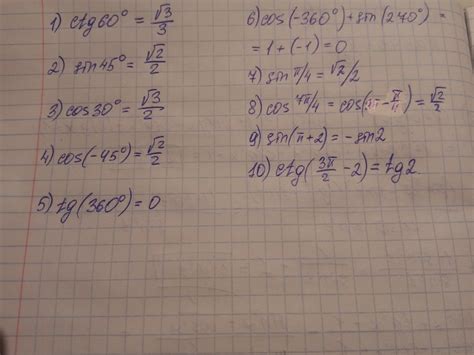 1) ctg60° = √3/3
2) sin45° = √2/2
3) cos30° = √3/2
4) cos(-45°) = √2/2
5) tg(360°) = 0
6) cos(-360°) + sin(270°) =
= 1 + (-1) = 0
7) sin π/4 = √2/2
8) cos 7π/4 = cos(2π - π/4) = √2/2
9) sin(π+2) = -sin2
10) ctg(3π/2 - 2) = tg2